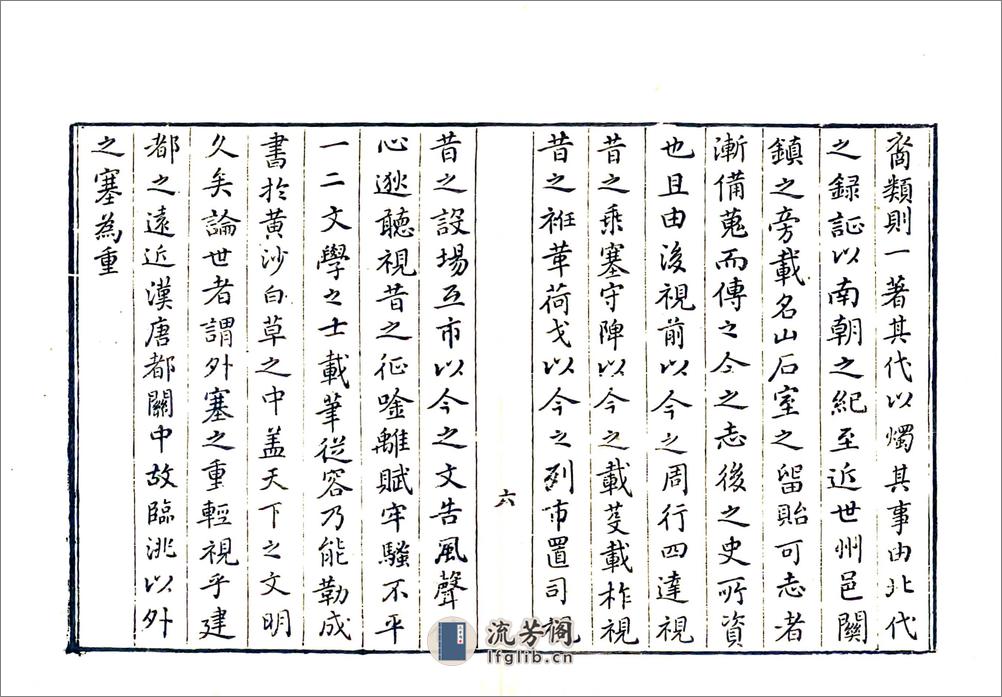 裔類則一著其代以燭其事由北代
之録証以南朝之紀至近世州邑關
鎮之旁載名山石室之留貽可志者
漸備蒐而傳之今之志後之史所資
也且由後視前以今之周行四達視
昔之乘塞守陴以今之載芟載柞視
昔之袵革荷戈以今之列市置司視
六
昔之設場互市以今之文告風聲
心逖聽視昔之征唫離賦牢騷不平
一二文學之士載筆從容乃能勒成
書於黄沙白草之中盖天下之文明
久矣論世者謂外塞之重輕視乎建
都之遠近漢唐都關中故臨洮以外
之塞為重
流芳閣
lfglib.cn